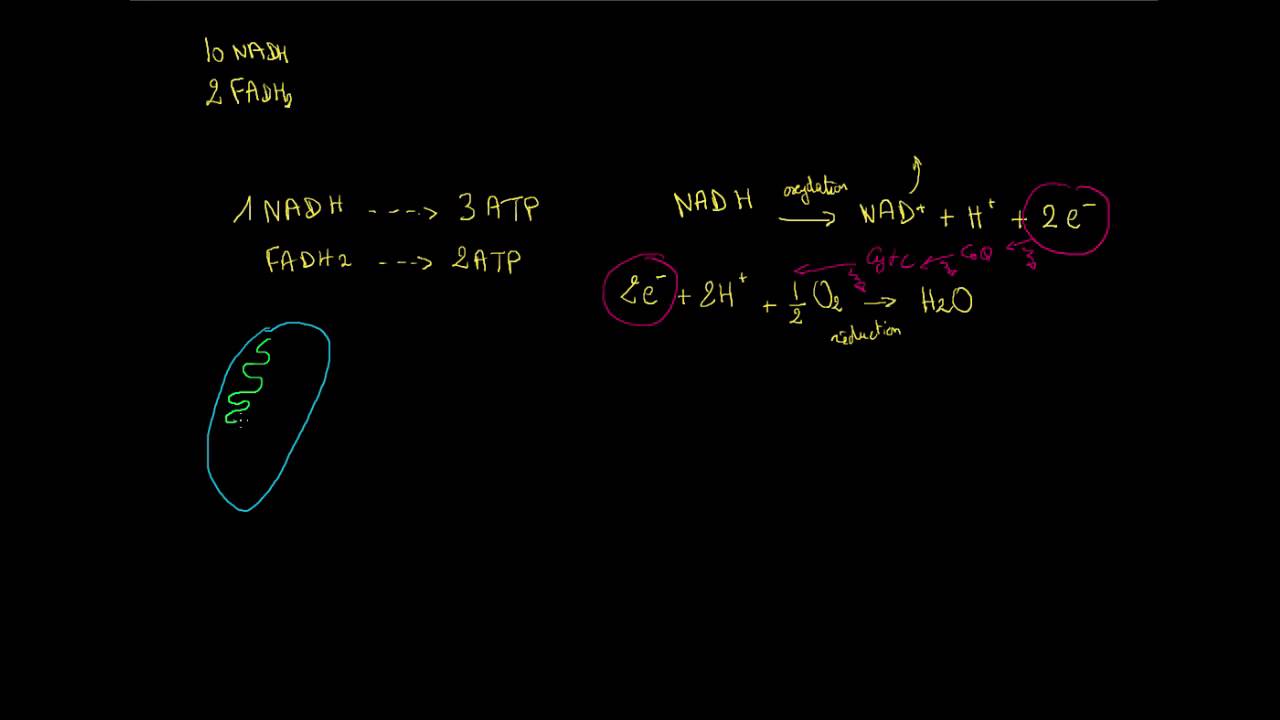 10 NADH
2 FADH₂
1 NADH ----> 3 ATP
FADH2 ---> 2ATP
NADH oxydation → NAD⁺ + H⁺ + 2e⁻
Cyt C ← CoQ ←
2e⁻ + 2H⁺ + 1/2 O₂ → H2O
réduction